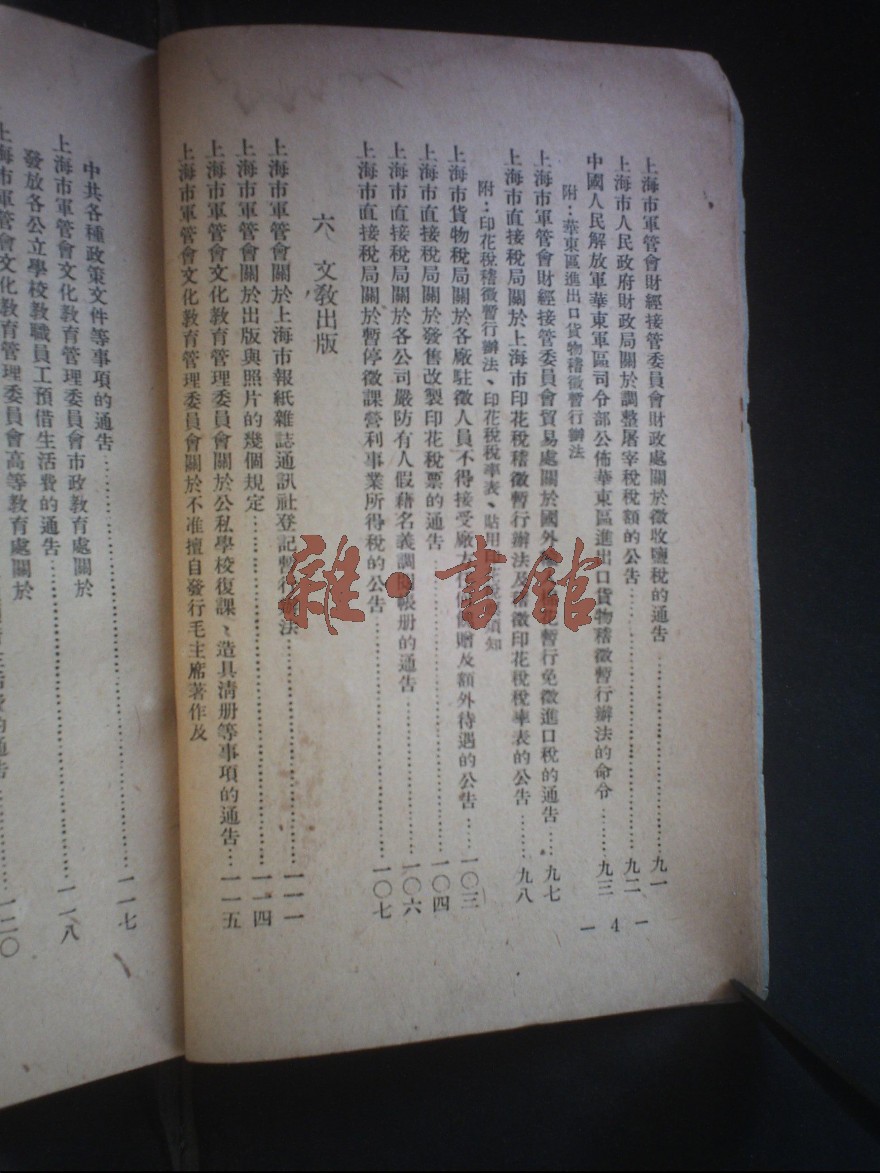 上海市軍管會財經接管委員會財政處關於徵收鹽稅的通告……九一
上海市人民政府財政局關於調整屠宰稅稅額的公告……九二
中國人民解放軍華東軍區司令部公佈華東區進出口貨物稽徵暫行辦法的命令……九三
附：華東區進出口貨物稽徵暫行辦法
上海市軍管會財經接管委員會貿易處關於國外 暫行免徵進口稅的通告……九七
上海市直接稅局關於上海市印花稅稽徵暫行辦法及稽徵印花稅稅率表的公告……九八
附：印花稅稽徵暫行辦法、印花稅稅率表、貼用 須知
上海市貨物稅局關於各廠駐徵人員不得接受廠方 贈及額外待遇的公告……一〇三
上海市直接稅局關於發售改製印花稅票的通告……一〇四
上海市直接稅局關於各公司嚴防有人假藉名義調 帳册的通告……一〇六
上海市直接稅局關於暫停徵課營利事業所得稅的公告……一〇七
六、文教出版
上海市軍管會關於上海市報紙雜誌通訊社登記暫行辦法……一一一
上海市軍管會關於出版與照片的幾個規定……一一四
上海市軍管會文化教育管理委員會關於公私學校復課、造具清册等事項的通告……一一五
上海市軍管會文化教育管理委員會關於不准擅自發行毛主席著作及
— 4 —
中共各種政策文件等事項的通告……一一七
上海市軍管會文化教育管理委員會市政教育處關於
發放各公立學校教職員工預借生活費的通告……一一八
上海市軍管會文化教育管理委員會高等教育處關於
生活費的通告……一二〇
雜·書館